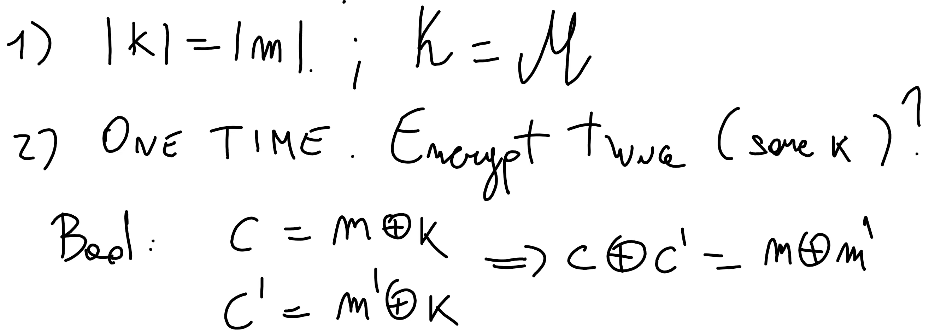 1) |k| = |m| ; K = M
2) ONE TIME. Encrypt twice (same K)?
Bad: C = m⊕K ⟹ C⊕C' = m⊕m'
C' = m'⊕K